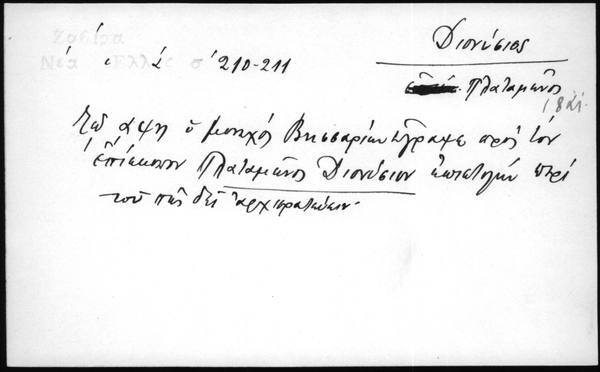 Ζαβίρα
Νέα Ἑλλάς σ
σ 210-211
Διονύσιος
Πλαταμῶνος
(821.
Τῷ αψη ὁ μοναχός Βησσαρίων ἔγραψε πρός τόν
ἐπίσκοπον Πλαταμῶνος Διονύσιον ἐπιστολήν περί
τοῦ πῶς δεῖ ἀρχιερατεύειν.